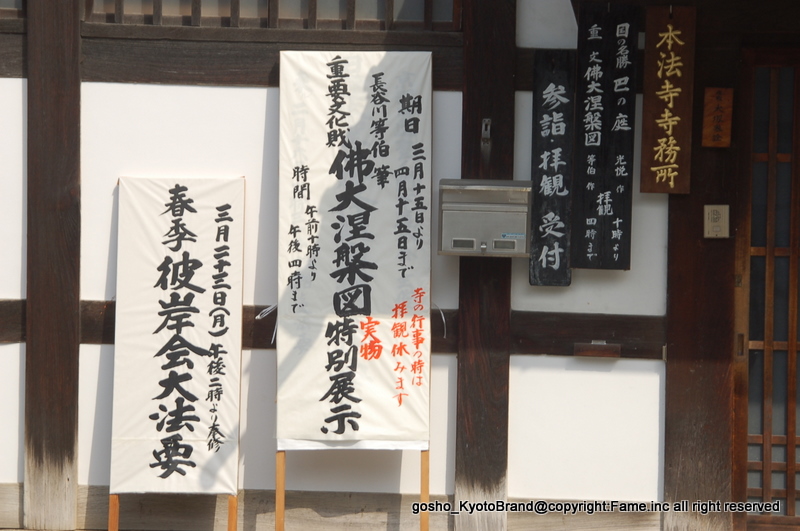 本法寺寺務所
国の名勝 巴の庭 光悦 作
重文 佛大涅槃図 等伯 作
拝観 十時より
四時まで
参詣・拝観 受付
期日 三月十五日より
四月十五日まで
長谷川等伯 筆
重要文化財
佛大涅槃図特別展示
実物
時間 午前十時より
午後四時まで
寺の行事の時は
拝観休みます
三月二十三日(月)午後二時より奉修
春季彼岸会大法要
gosho_KyotoBrand@copyright.Fame.inc all right reserved